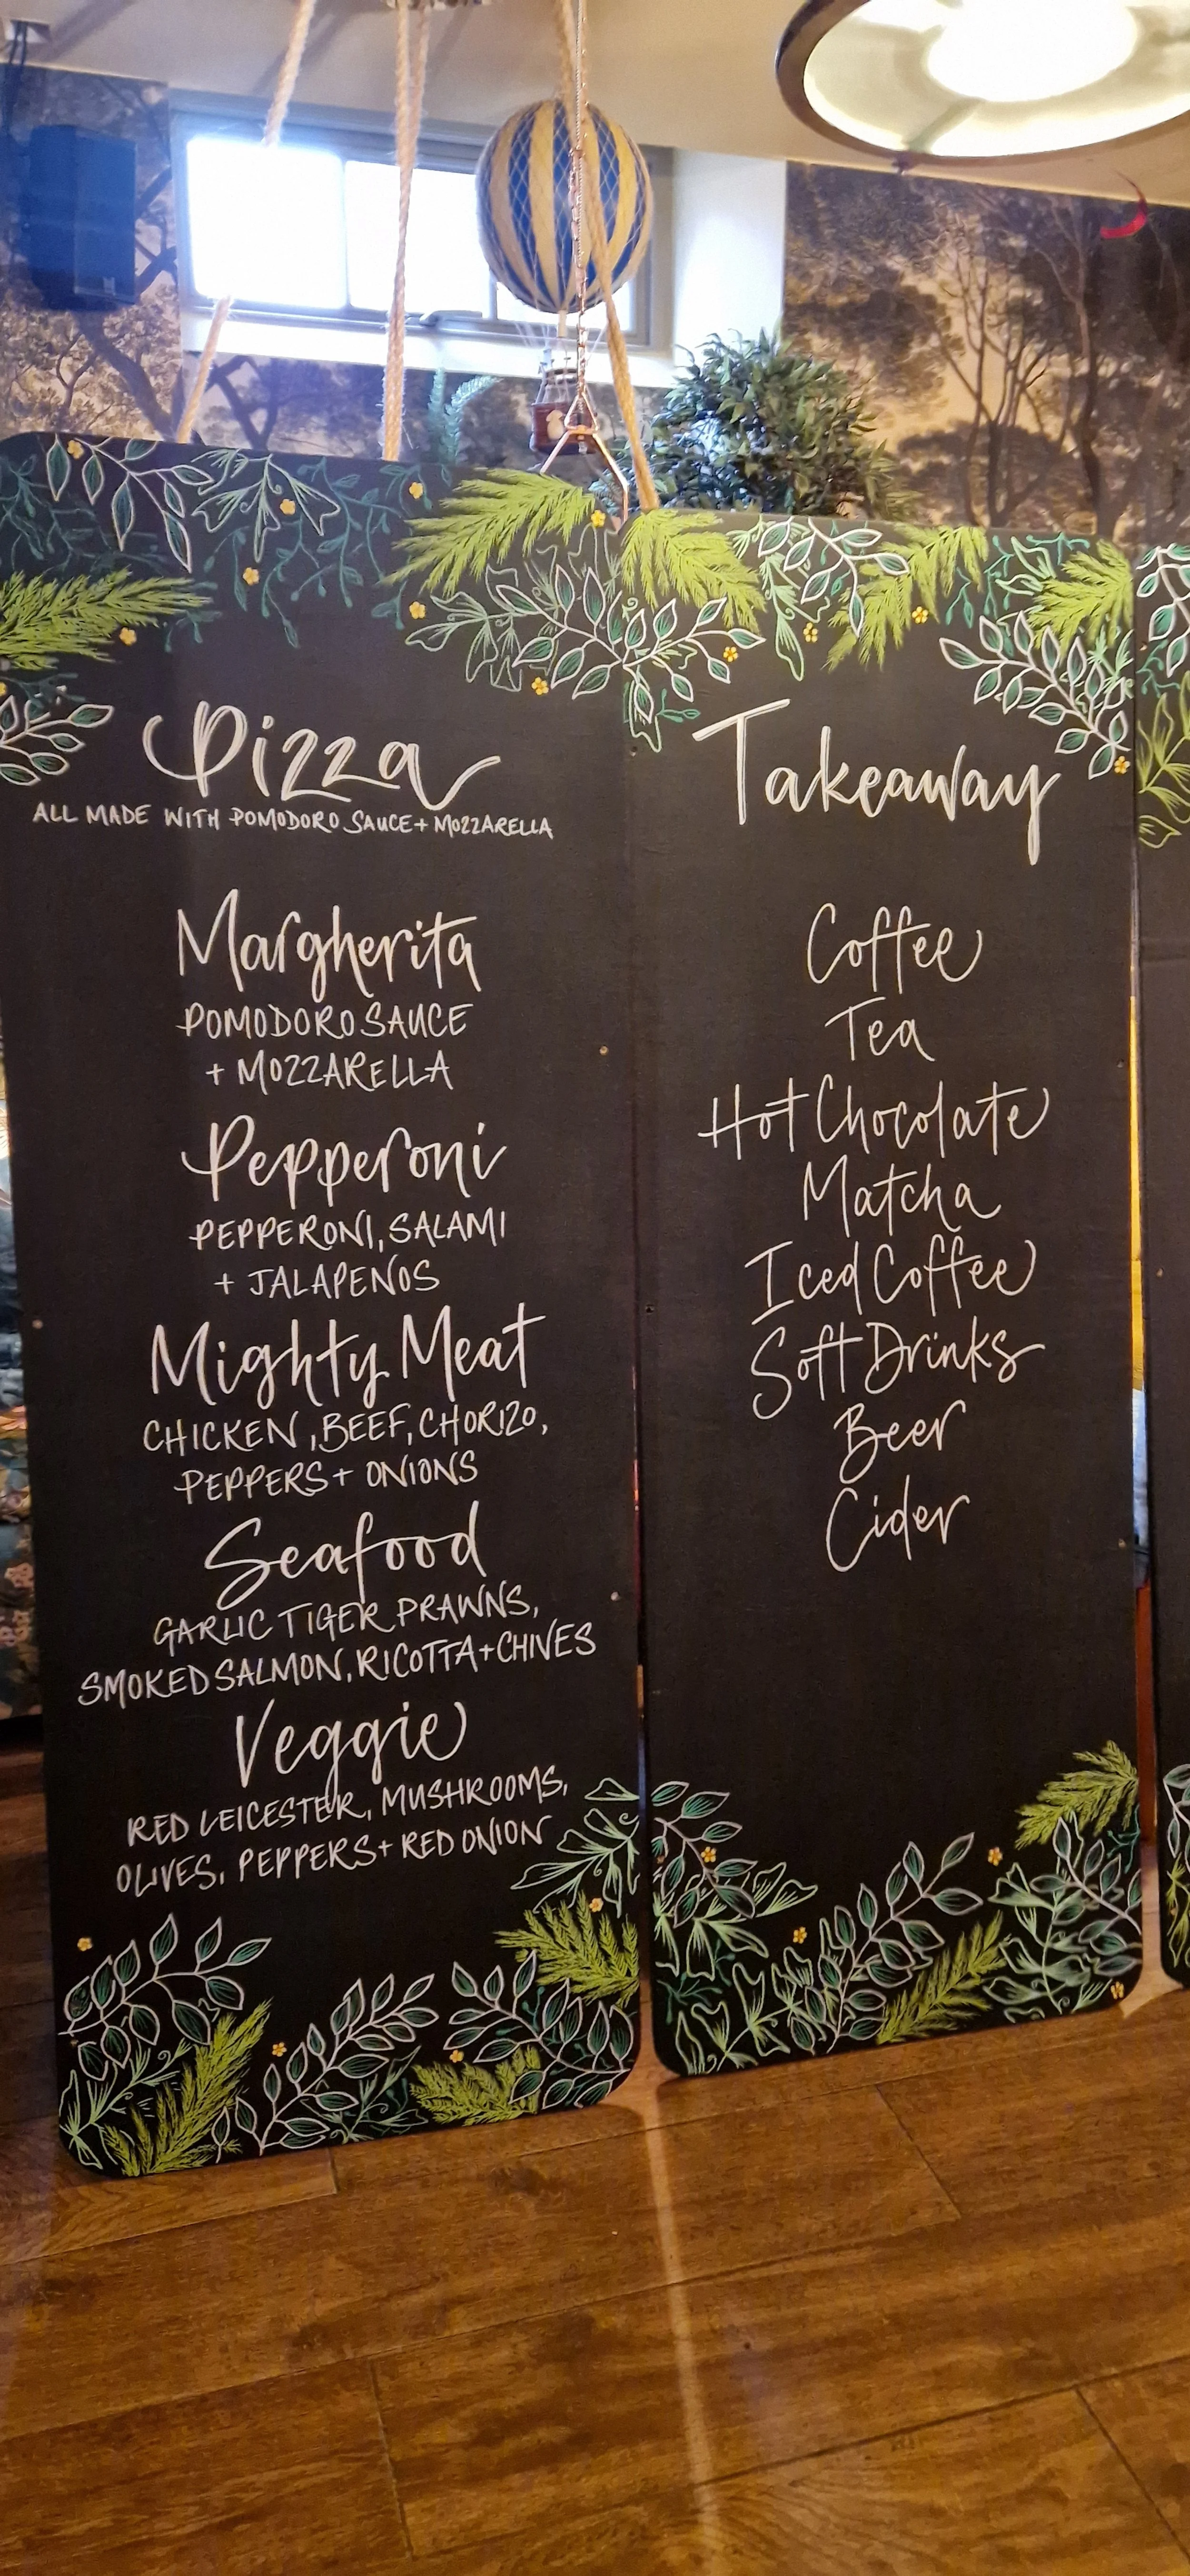 Pizza
ALL MADE WITH POMODORO SAUCE + MOZZARELLA
Margherita
POMODORO SAUCE
+ MOZZARELLA
Pepperoni
PEPPERONI, SALAMI
+ JALAPENOS
Mighty Meat
CHICKEN, BEEF, CHORIZO,
PEPPERS + ONIONS
Seafood
GARLIC TIGER PRAWNS,
SMOKED SALMON, RICOTTA + CHIVES
Veggie
RED LEICESTER, MUSHROOMS,
OLIVES, PEPPERS + RED ONION
Takeaway
Coffee
Tea
Hot Chocolate
Matcha
Iced Coffee
Soft Drinks
Beer
Cider